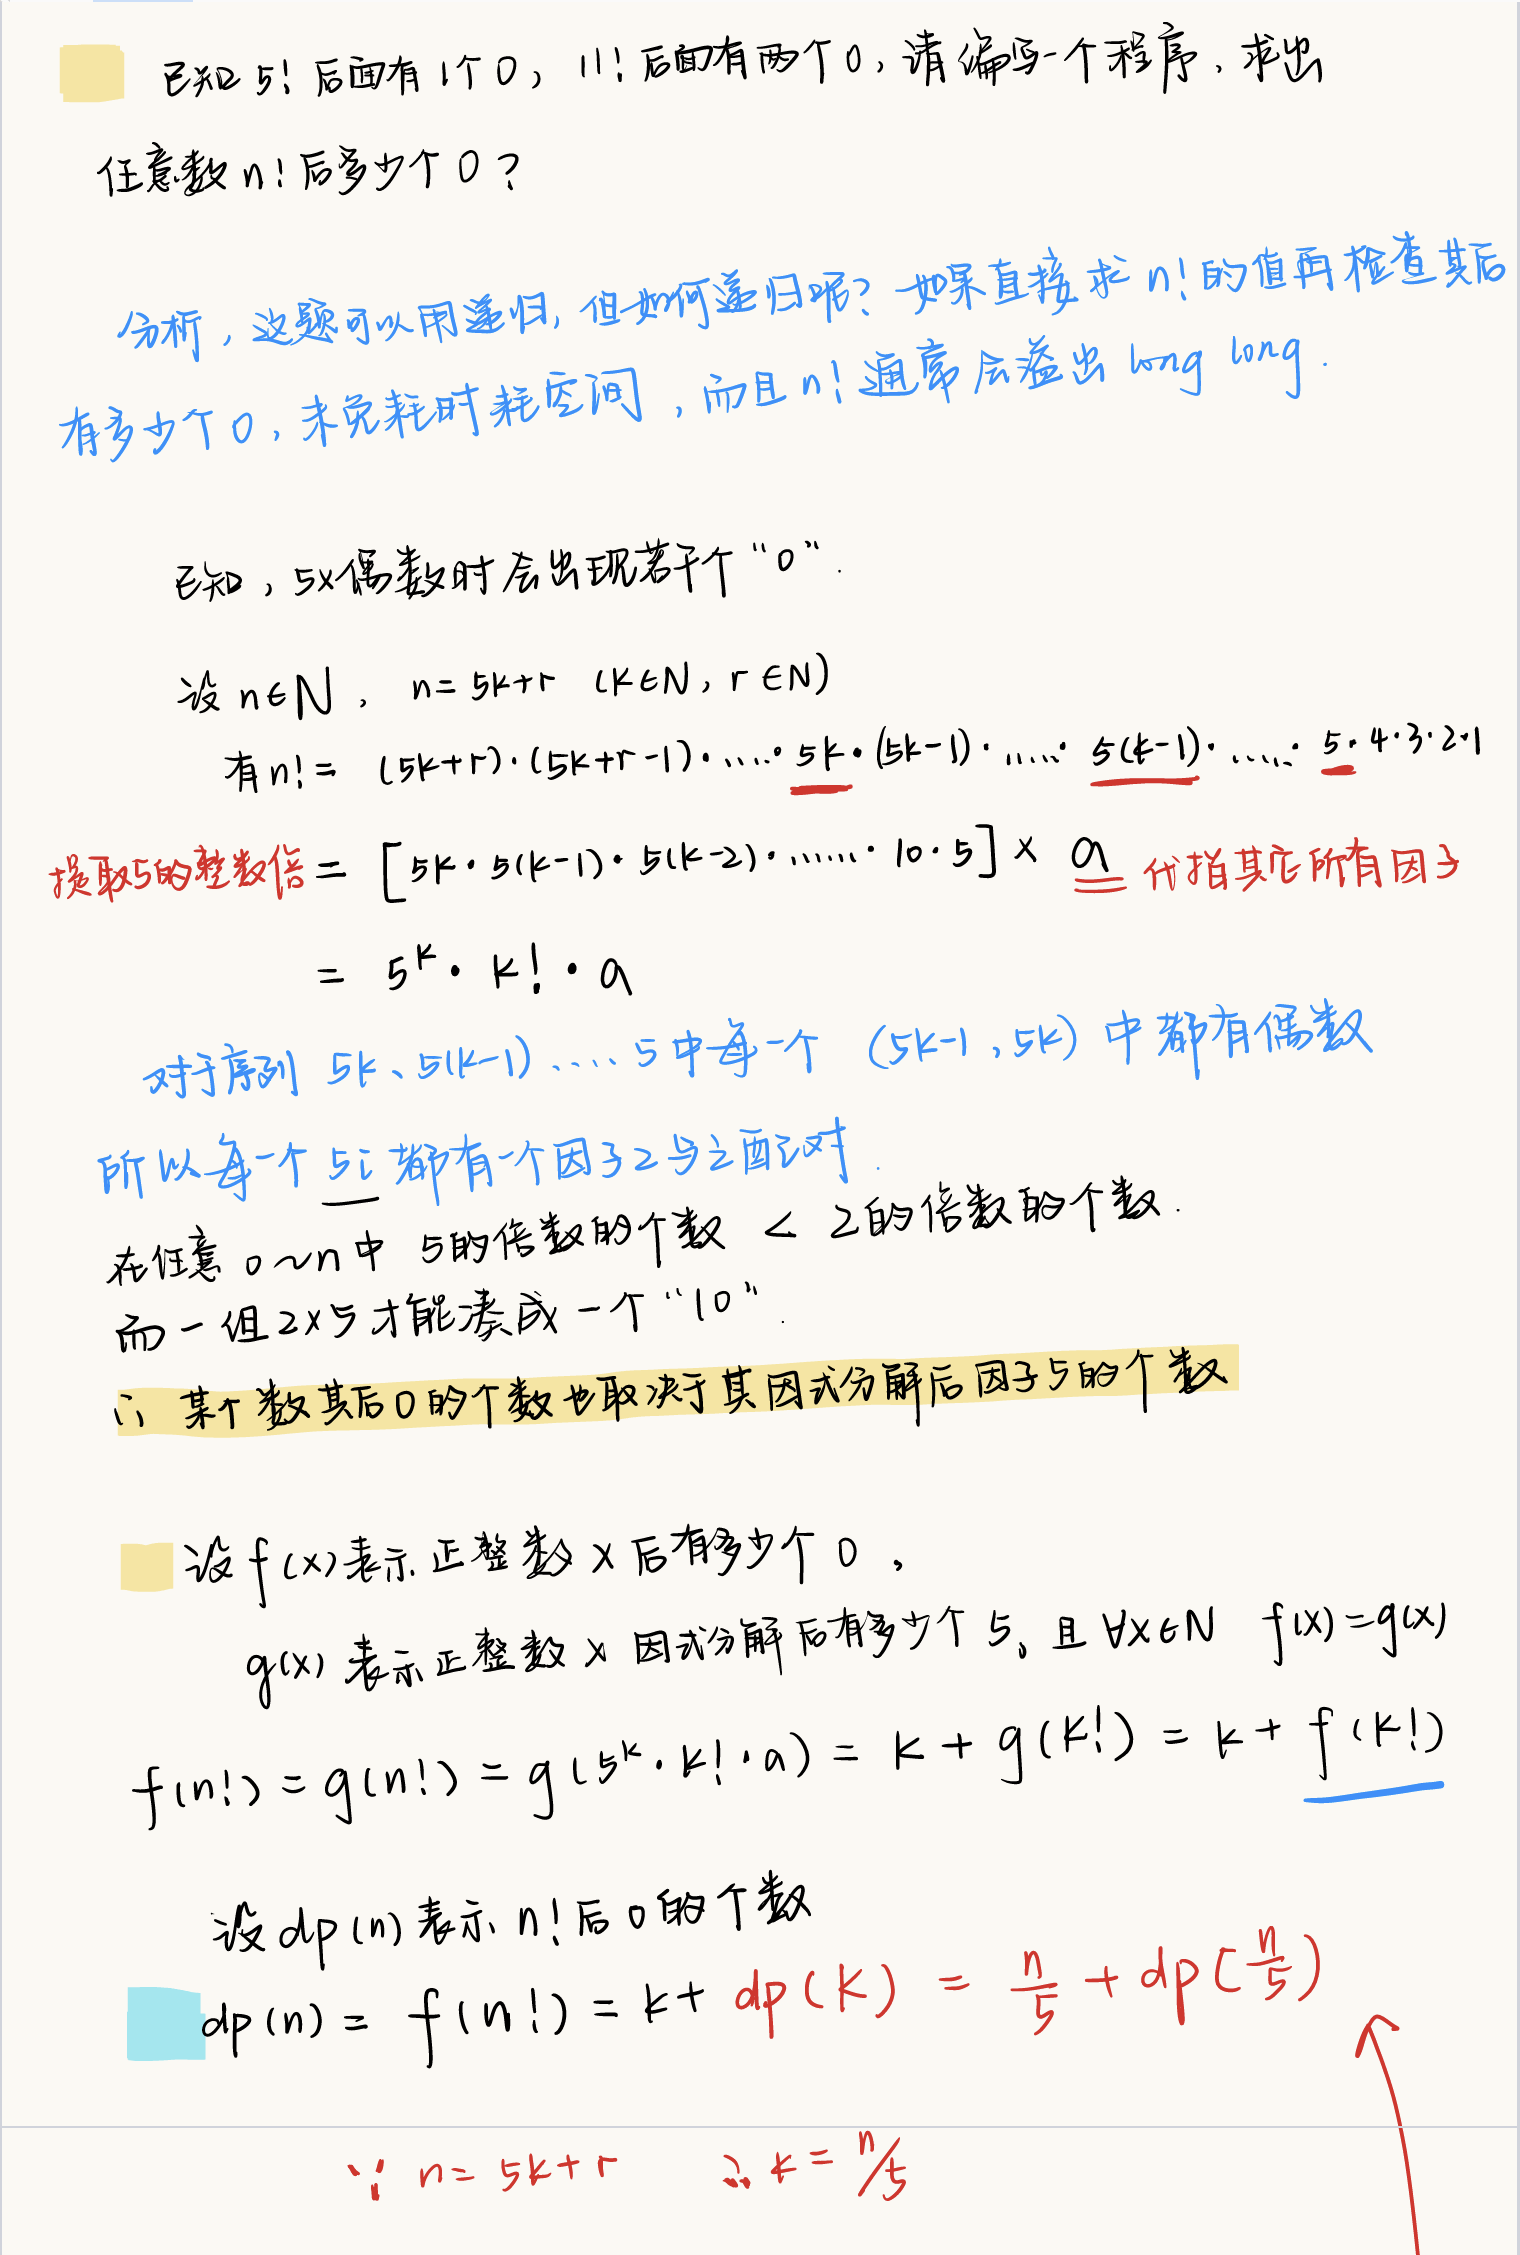 已知5!后面有1个0，11!后面有两个0，请编写一个程序，求出
任意数n!后多少个0？
分析，这题可以用递归，但如何递归呢？如果直接求n!的值再检查其后
有多少个0，未免耗时耗空间，而且n!通常会溢出long long.
已知，5×偶数时会出现若干个“0”.
设n∈N，n=5k+r (k∈N，r∈N)
有n!= (5k+r)·(5k+r-1)·....·5k·(5k-1)·.....·5(k-1)·.....·5·4·3·2·1
提取5的整数倍 = [5k·5(k-1)·5(k-2)·......·10·5] × a 代指其它所有因子
= 5^k · k! · a
对于序列 5k、5(k-1)....5中每一个 (5k-1，5k)中都有偶数
所以每一个5i都有一个因子2与之配对.
在任意0~n中 5的倍数的个数 < 2的倍数的个数.
而一组2×5才能凑成一个“10”.
∴ 某个数其后0的个数也取决于其因式分解后因子5的个数
设f(x)表示正整数x后有多少个0，
g(x)表示正整数x因式分解后有多少个5，且∀x∈N f(x)=g(x)
f(n!)=g(n!)=g(5^k·k!·a)=k+g(k!)=k+f(k!)
设dp(n)表示n!后0的个数
dp(n)=f(n!)=k+dp(k)=n/5+dp[n/5)
∵ n=5k+r ∴ k=n/5